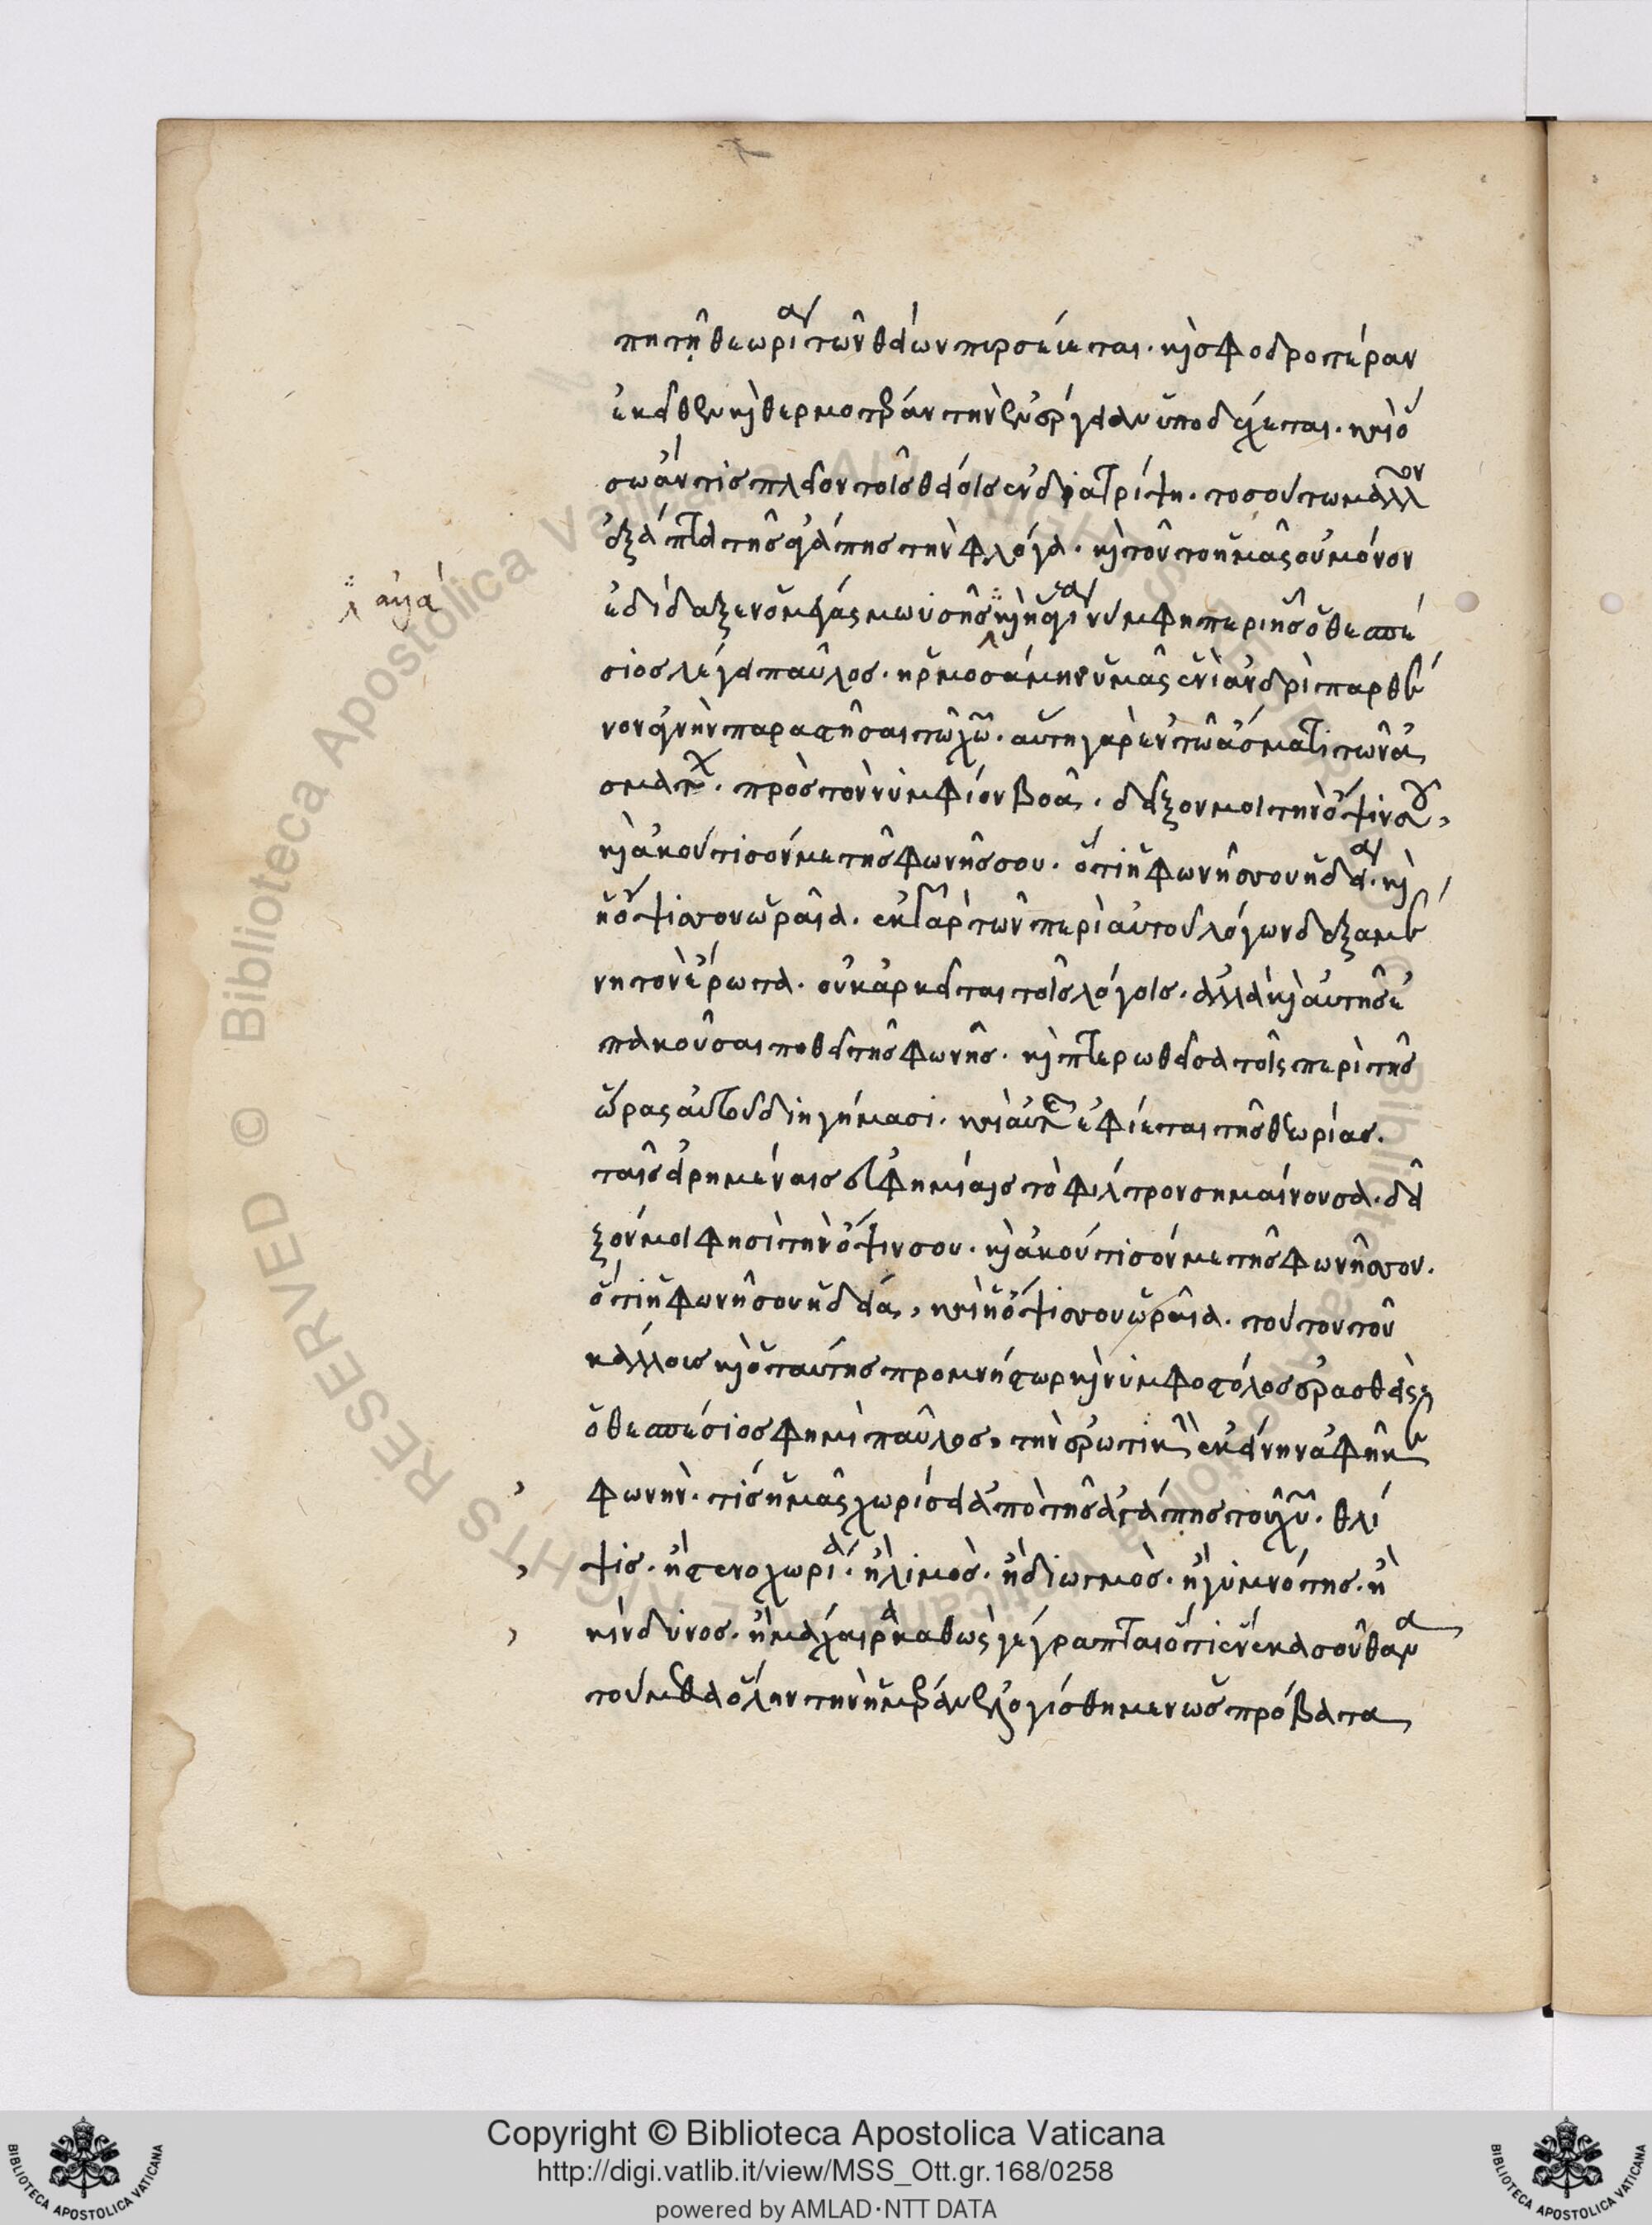 πη τῆ θεωρίᾳ τῶν θείων προσίεται. καὶ σφοδροτέραν
ἐκεῖθεν καὶ θερμοτέραν τὴν ἐνέργειαν ὑποδέχεται. καὶ ὅ
σω ἄν τις πλεῖον τοῖς θείοις ἐνδιατρίψη. τοσούτω μᾶλλον
ἐξάπτει τῆς ἀγάπης τὴν φλόγα. καὶ τοῦτο ἡμᾶς οὐ μόνον
ἐδίδαξεν ὁ μέγας μωϋσῆς καὶ ἡ ἁγία νύμφη περὶ ἧς ὁ θεσπέ
σιος λέγει παῦλος. ἡρμοσάμην ὑμᾶς ἑνὶ ἀνδρὶ παρθέ
νον ἁγνὴν παραστῆσαι τῶ χῶ. αὕτη γὰρ ἐν τῶ ἄσματι τῶν ἀ
σμάτων. πρὸς τὸν νυμφίον βοᾶ. δεῖξον μοι τὴν ὄψιν σου,
καὶ ἀκούτισόν με τῆς φωνῆς σου. ὅτι ἡ φωνή σου ἡδεῖα. καὶ
ἡ ὄψις σου ὡραία. ἐκ γὰρ τῶν περὶ αὐτοῦ λόγων δεξαμέ
νη τὸν ἔρωτα. οὐκ ἀρκεῖται τοῖς λόγοις. ἀλλὰ καὶ αὐτῆς ἐ
πακοῦσαι ποθεῖ τῆς φωνῆς. καὶ πτερωθεῖσα τοῖς περὶ τῆς
ὥρας αὐτοῦ διηγήμασι. καὶ αὐτῆς ἐφίεται τῆς θεωρίας.
ταῖς εἰρημέναις εὐφημίαις τὸ φίλτρον σημαίνουσα. δεῖ
ξόν μοι φησὶ τὴν ὄψιν σου. καὶ ἀκούτισόν με τῆς φωνῆς σου.
ὅτι ἡ φωνή σου ἡδεῖα, καὶ ἡ ὄψις σου ὡραία. τούτου τοῦ
κάλλους καὶ ὁ ταύτης προμνήστωρ καὶ νυμφοστόλος ἐρασθεὶς
ὁ θεσπέσιος φημὶ παῦλος, τὴν ἐρωτικὴν ἐκείνην ἀφῆκε
φωνήν. τίς ἡμᾶς χωρίσει ἀπὸ τῆς ἀγάπης τοῦ χῦ. θλί
ψις. ἢ στενοχωρία. ἢ λιμὸς. ἢ διωγμὸς. ἢ γυμνότης. ἢ
κίνδυνος. ἢ μάχαιρα καθὼς γέγραπται ὅτι ἕνεκα σοῦ θανα
τούμεθα ὅλην τὴν ἡμέραν ἐλογίσθημεν ὡς πρόβατα